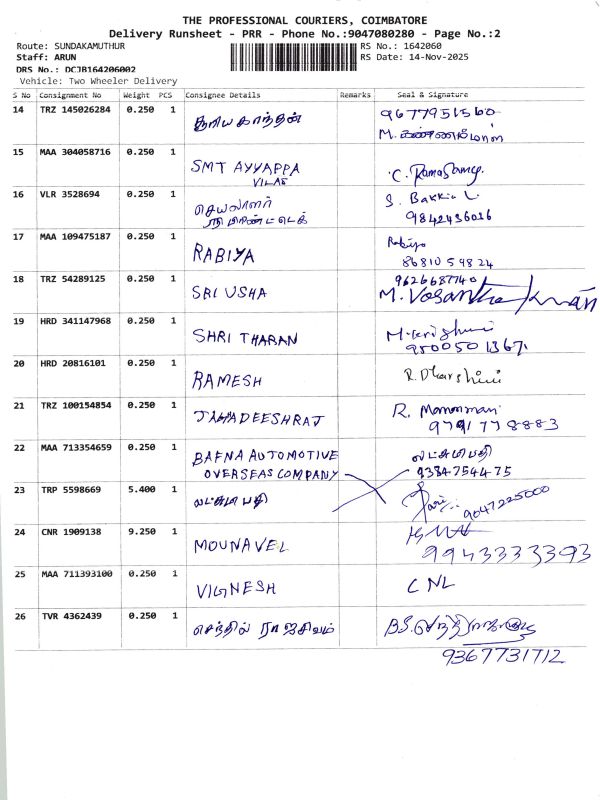 THE PROFESSIONAL COURIERS, COIMBATORE
Delivery Runsheet - PRR - Phone No.:9047080280 - Page No.:2
Route: SUNDAKAMUTHUR
RS No.: 1642060
Staff: ARUN
RS Date: 14-Nov-2025
DRS No.: DCJB164206002
Vehicle: Two Wheeler Delivery
S No Consignment No Weight PCS Consignee Details Remarks Seal & Signature
14 TRZ 145026284 0.250 1 சூரியகாந்தன் 9677951560
M. கண்ணம்மாள்
15 MAA 304058716 0.250 1 SMT AYYAPPA C. Ramasamy
VILAS
16 VLR 3528694 0.250 1 செயலாளர் S. Bakkia L.
9842436016
17 MAA 109475187 0.250 1 RABIYA Rabiya
8681059824
18 TRZ 54289125 0.250 1 SRI USHA 9626687740
M. Vasantha Kumar
19 HRD 341147968 0.250 1 SHRI THARAN
9500501367
20 HRD 20816101 0.250 1 RAMESH R. Dharshini
21 TRZ 100154854 0.250 1 JAGADEESHRAJ R. Manonmani
9791778883
22 MAA 713354659 0.250 1 BAFNA AUTOMOTIVE லட்சுமிபதி
OVERSEAS COMPANY 9384754475
23 TRP 5598669 5.400 1 லட்சுமிபதி 9047225000
24 CNR 1909138 9.250 1 MOUNAVEL
9943333393
25 MAA 711393100 0.250 1 VIGNESH CNL
26 TVR 4362439 0.250 1 செந்தில் ராஜசிவம்
9367731712